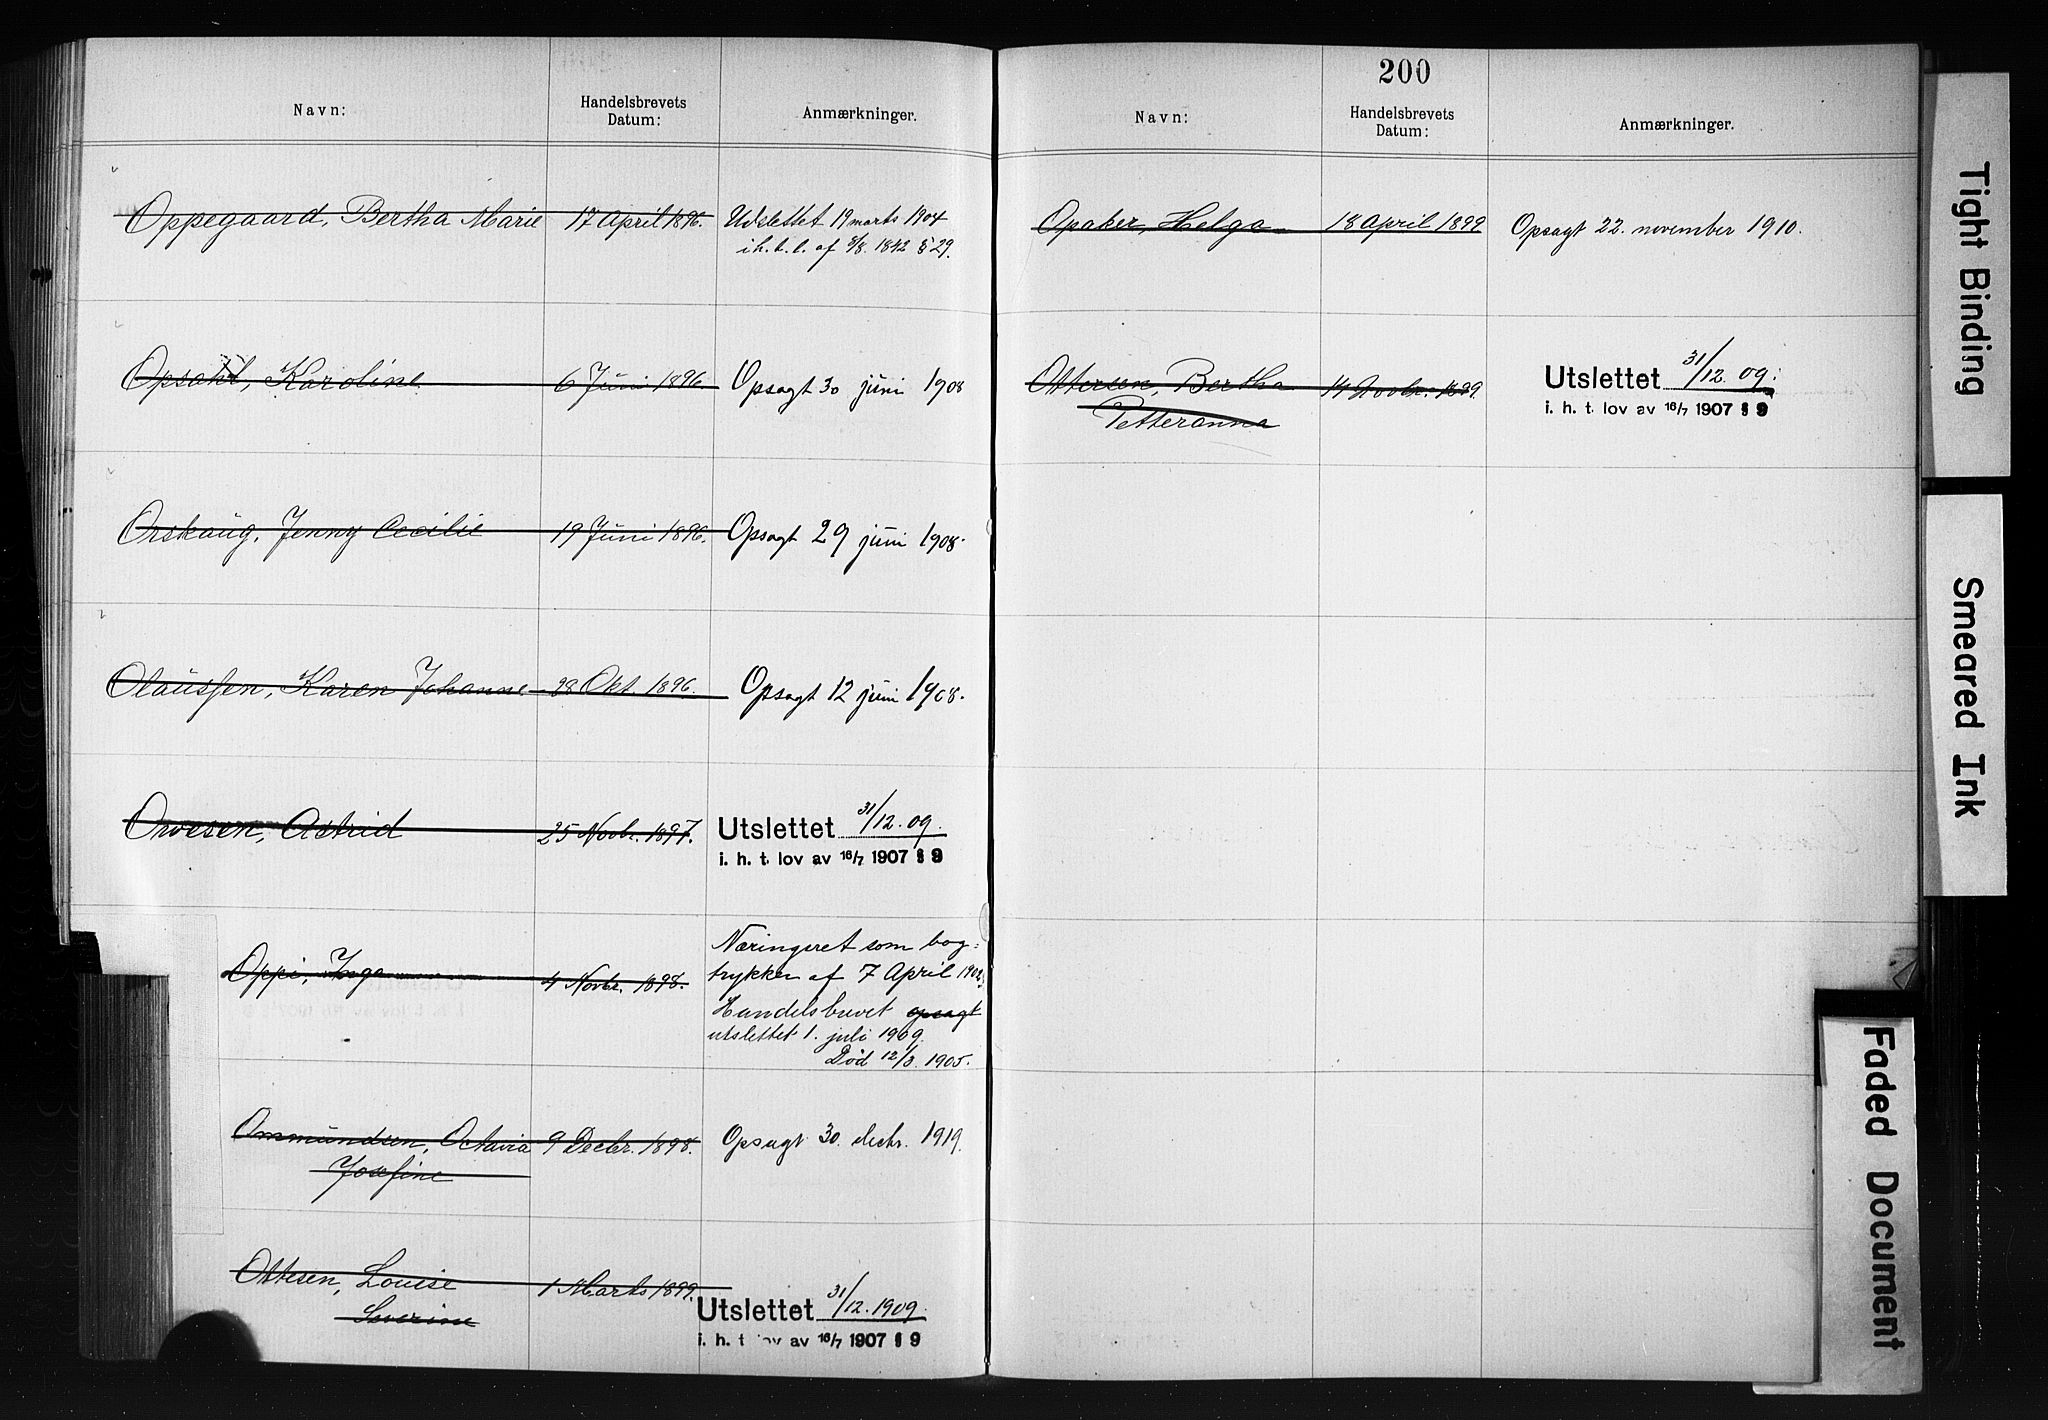 Navn:
Handelsbrevets
Datum:
Anmærkninger.
Oppegaard, Bertha Marie 17 April 1896. Udslettet 19 marts 1904
i.h.t.l. af 8/8. 1842 § 29.
Opsahl, Karoline 6 Juni 1896 Opsagt 30 juni 1908
Orskaug, Jenny Cecilie 19 Juni 1896. Opsagt 29 juni 1908.
Olaussen, Karen Johanne 28 Okt. 1896. Opsagt 12 juni 1908.
Orvesen, Astrid 25 Novbr. 1897. Utslettet 31/12.09.
i. h. t. lov av 16/7 1907 § 9
Oppi, Inga 4 Novbr. 1898. Næringsret som bog-
trykker af 7 April
Handelsbrevet opsagt
utslettet 1. juli 1909.
Død 12/3. 1905.
Ommundsen, Octavia 9 Decbr. 1898. Opsagt 30. decbr. 1919.
Josefine
Ottesen, Louise 1 Marts 1899. Utslettet 31/12.1909.
Severine
i. h. t. lov av 16/7 1907 § 9
200
Navn:
Handelsbrevets
Datum:
Anmærkninger.
Opaker, Helga 18 April 1899 Opsagt 22. november 1910.
Ottersen, Bertha 14 Novbr. 1899. Utslettet 31/12.09.
Petteranna
i. h. t. lov av 16/7 1907 § 9
Tight Binding
Smeared Ink
Faded Document